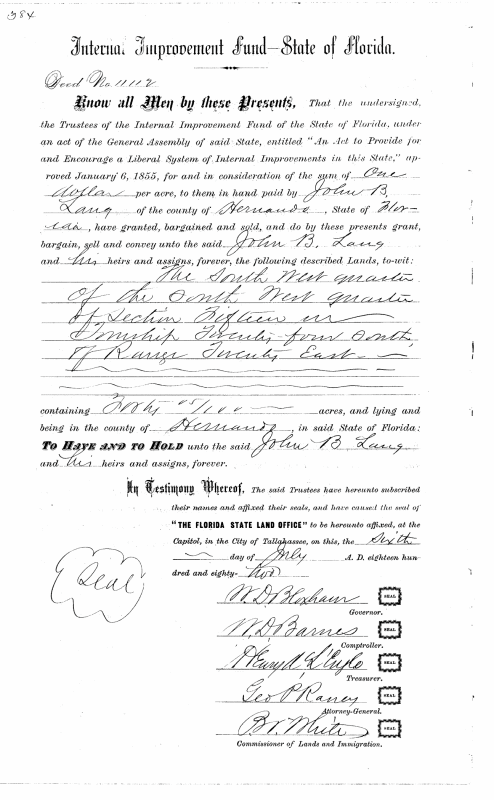 384
Internal Improvement Fund—State of Florida.
Deed No. 11112
Know all Men by these Presents, That the undersigned,
the Trustees of the Internal Improvement Fund of the State of Florida, under
an act of the General Assembly of said State, entitled "An Act to Provide for
and Encourage a Liberal System of Internal Improvements in this State," ap-
proved January 6, 1855, for and in consideration of the sum of One
dollar per acre, to them in hand paid by John B.
Lang of the county of Hernando, State of Flor-
ida, have granted, bargained and sold, and do by these presents grant,
bargain, sell and convey unto the said John B. Lang
and his heirs and assigns, forever, the following described Lands, to-wit:
The South West quarter
of the South West quarter
of Section Fifteen in
Township Twenty four South,
of Range Twenty East
containing Forty 05/100 acres, and lying and
being in the county of Hernando, in said State of Florida:
To Have and to Hold unto the said John B Lang
and his heirs and assigns, forever.
In Testimony Whereof, The said Trustees have hereunto subscribed
their names and affixed their seals, and have caused the seal of
"THE FLORIDA STATE LAND OFFICE" to be hereunto affixed, at the
Capitol, in the City of Tallahassee, on this, the Sixth
day of July A. D. eighteen hun-
dred and eighty-two
Seal
W. D. Bloxham SEAL
Governor.
W. D. Barnes SEAL
Comptroller.
Henry A. L'Engle SEAL
Treasurer.
Geo P Raney SEAL
Attorney-General.
P. W. White SEAL
Commissioner of Lands and Immigration.